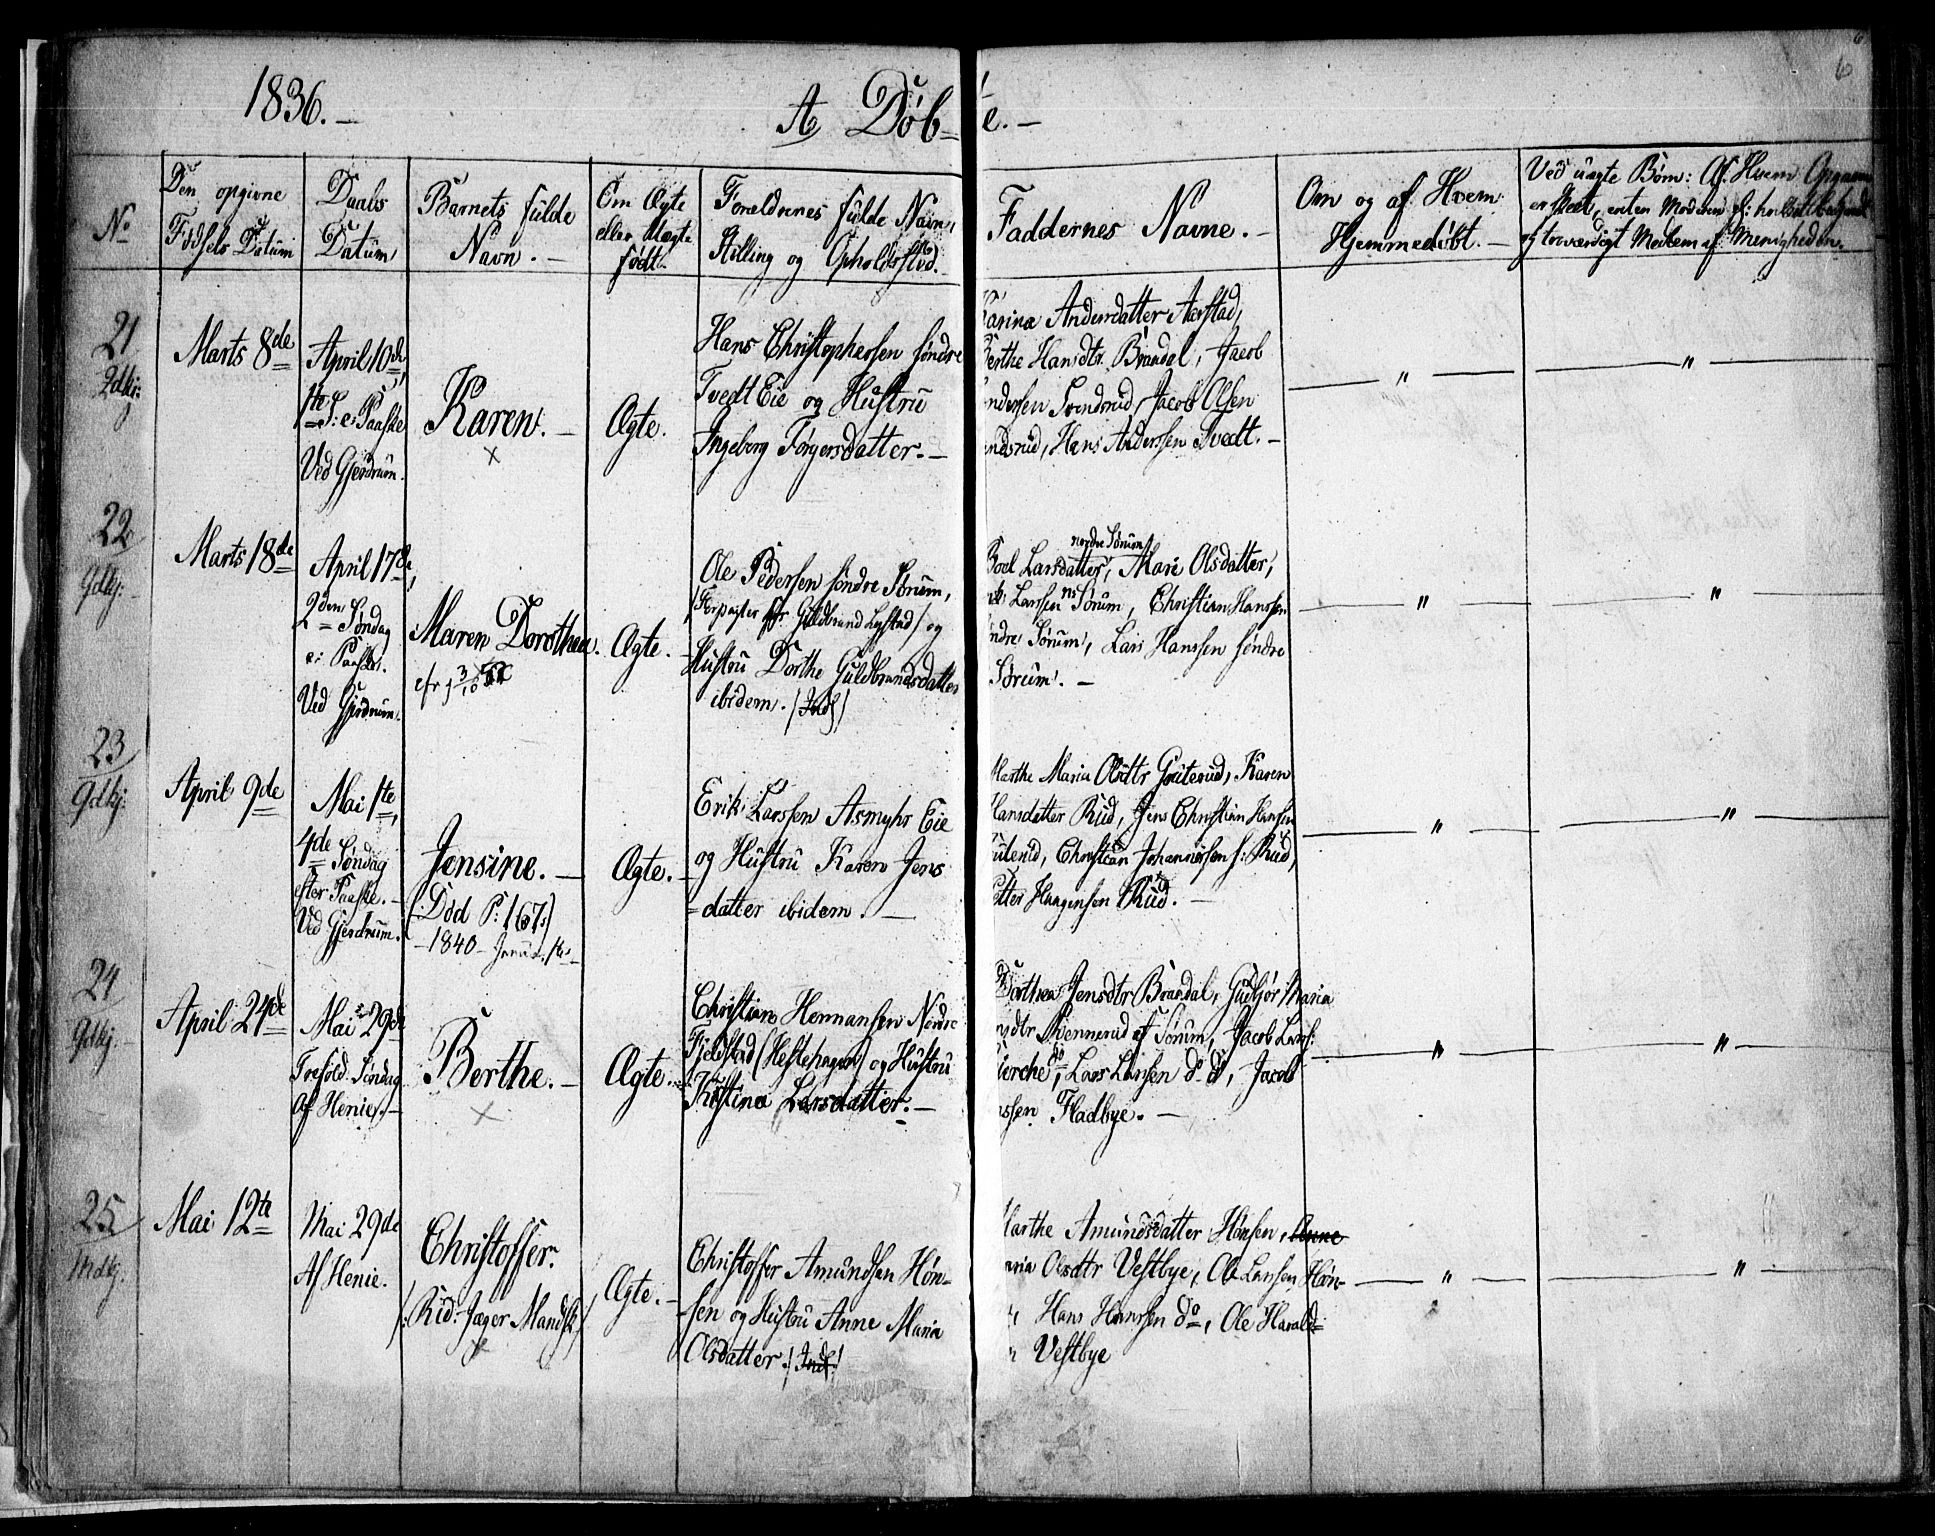 6
1836. –
A Døb-
e. –
No
Den opgivne
Fødsels Datum
Daabs
Datum
Barnets fulde
Navn. –
Om Ægte
eller Uægte
født.
Forældrenes fulde Navn,
Stilling og Opholdssted.
Faddernes Navne. –
Om og af Hvem
Hjemmedøbt. –
Ved uægte Børn: Af Hvem Opgaven
er skeet, enten Moderen el:
og troværdigt Medlem af Menigheden.
21
Gdkj:
Marts 8de
April 10de,
1te S: e: Paaske
Ved Gjerdrum.
Karen. –
x
Ægte.
Hans Christophersen søndre
Tvedt Eie og Hustru
Ingeborg Torgersdatter. –
Karina Andersdatter Aarstad,
Berthe Hansdtr. Brandal, Jacob
Andersen Svendsrud, Jacob Olsen
endsrud, Hans Anderssen Tvedt. –
"
"
22
Gdkj:
Marts 18de
April 17de,
2den Søndag
e: Paaske.
Ved Gjerdrum.
Maren Dorothea.
cfr
Ægte. –
Ole Pedersen søndre Sørum,
/Forpagter for Guldbrand Lystad/ og
Hustru Dorthe Guldbrandsdatter
ibidem. /Inds/
nordre Sørum
Boel Larsdatter, Mari Olsdatter,
Larssen ns Sørum, Christian Hanssen
søndre Sørum, Lars Hanssen søndre
Sørum. –
"
"
23
Gdkj:
April 9de
Mai 1te,
4de Søndag
efter Paaske. –
Ved Gjerdrum.
Jensine. –
(Død P: 167.)
– 1840 –
Ægte. –
Erik Larssen Asmyhr Eie
og Hustru Karen Jens
=datter ibidem. –
Marthe Maria Olsdtr Gruterud, Karen
Hansdatter Rud, Jens Christian Hansen
Gruterud, Christian Johannessen s: Rud,
Petter Haagensen Rud. –
"
"
24
Gdkj:
April 24de
Mai 29de
Trefold. Søndag
Af Henie. –
Berthe. –
x
Ægte.
Christian Hermansen Nordre
Fjeldstad (Hestehagen) og Hustru
Kristine Larsdatter. –
Dorthea Jensdtr Brandal, Gudjør Maria
nsdtr Kvennerud af Sørum, Jacob Lars:
Kierche, Lars Larsen do do, Jacob
nssen Fladbye. –
"
"
25
Mdkj:
Mai 12te
Mai 29de
Af Henie.
Christoffer.
/: Rid: Jæger Mandsk/
x
Ægte. –
Christoffer Amundsen Høn-
sen og Hustru Anne Maria
Olsdatter. /Inds:/
Marthe Amundsdatter Hønsen, Anne
Maria Olsdtr Vestbye, Ole Larsen Høn-
Hans Hanssen do, Ole Harald=
n Vestbye
"
"